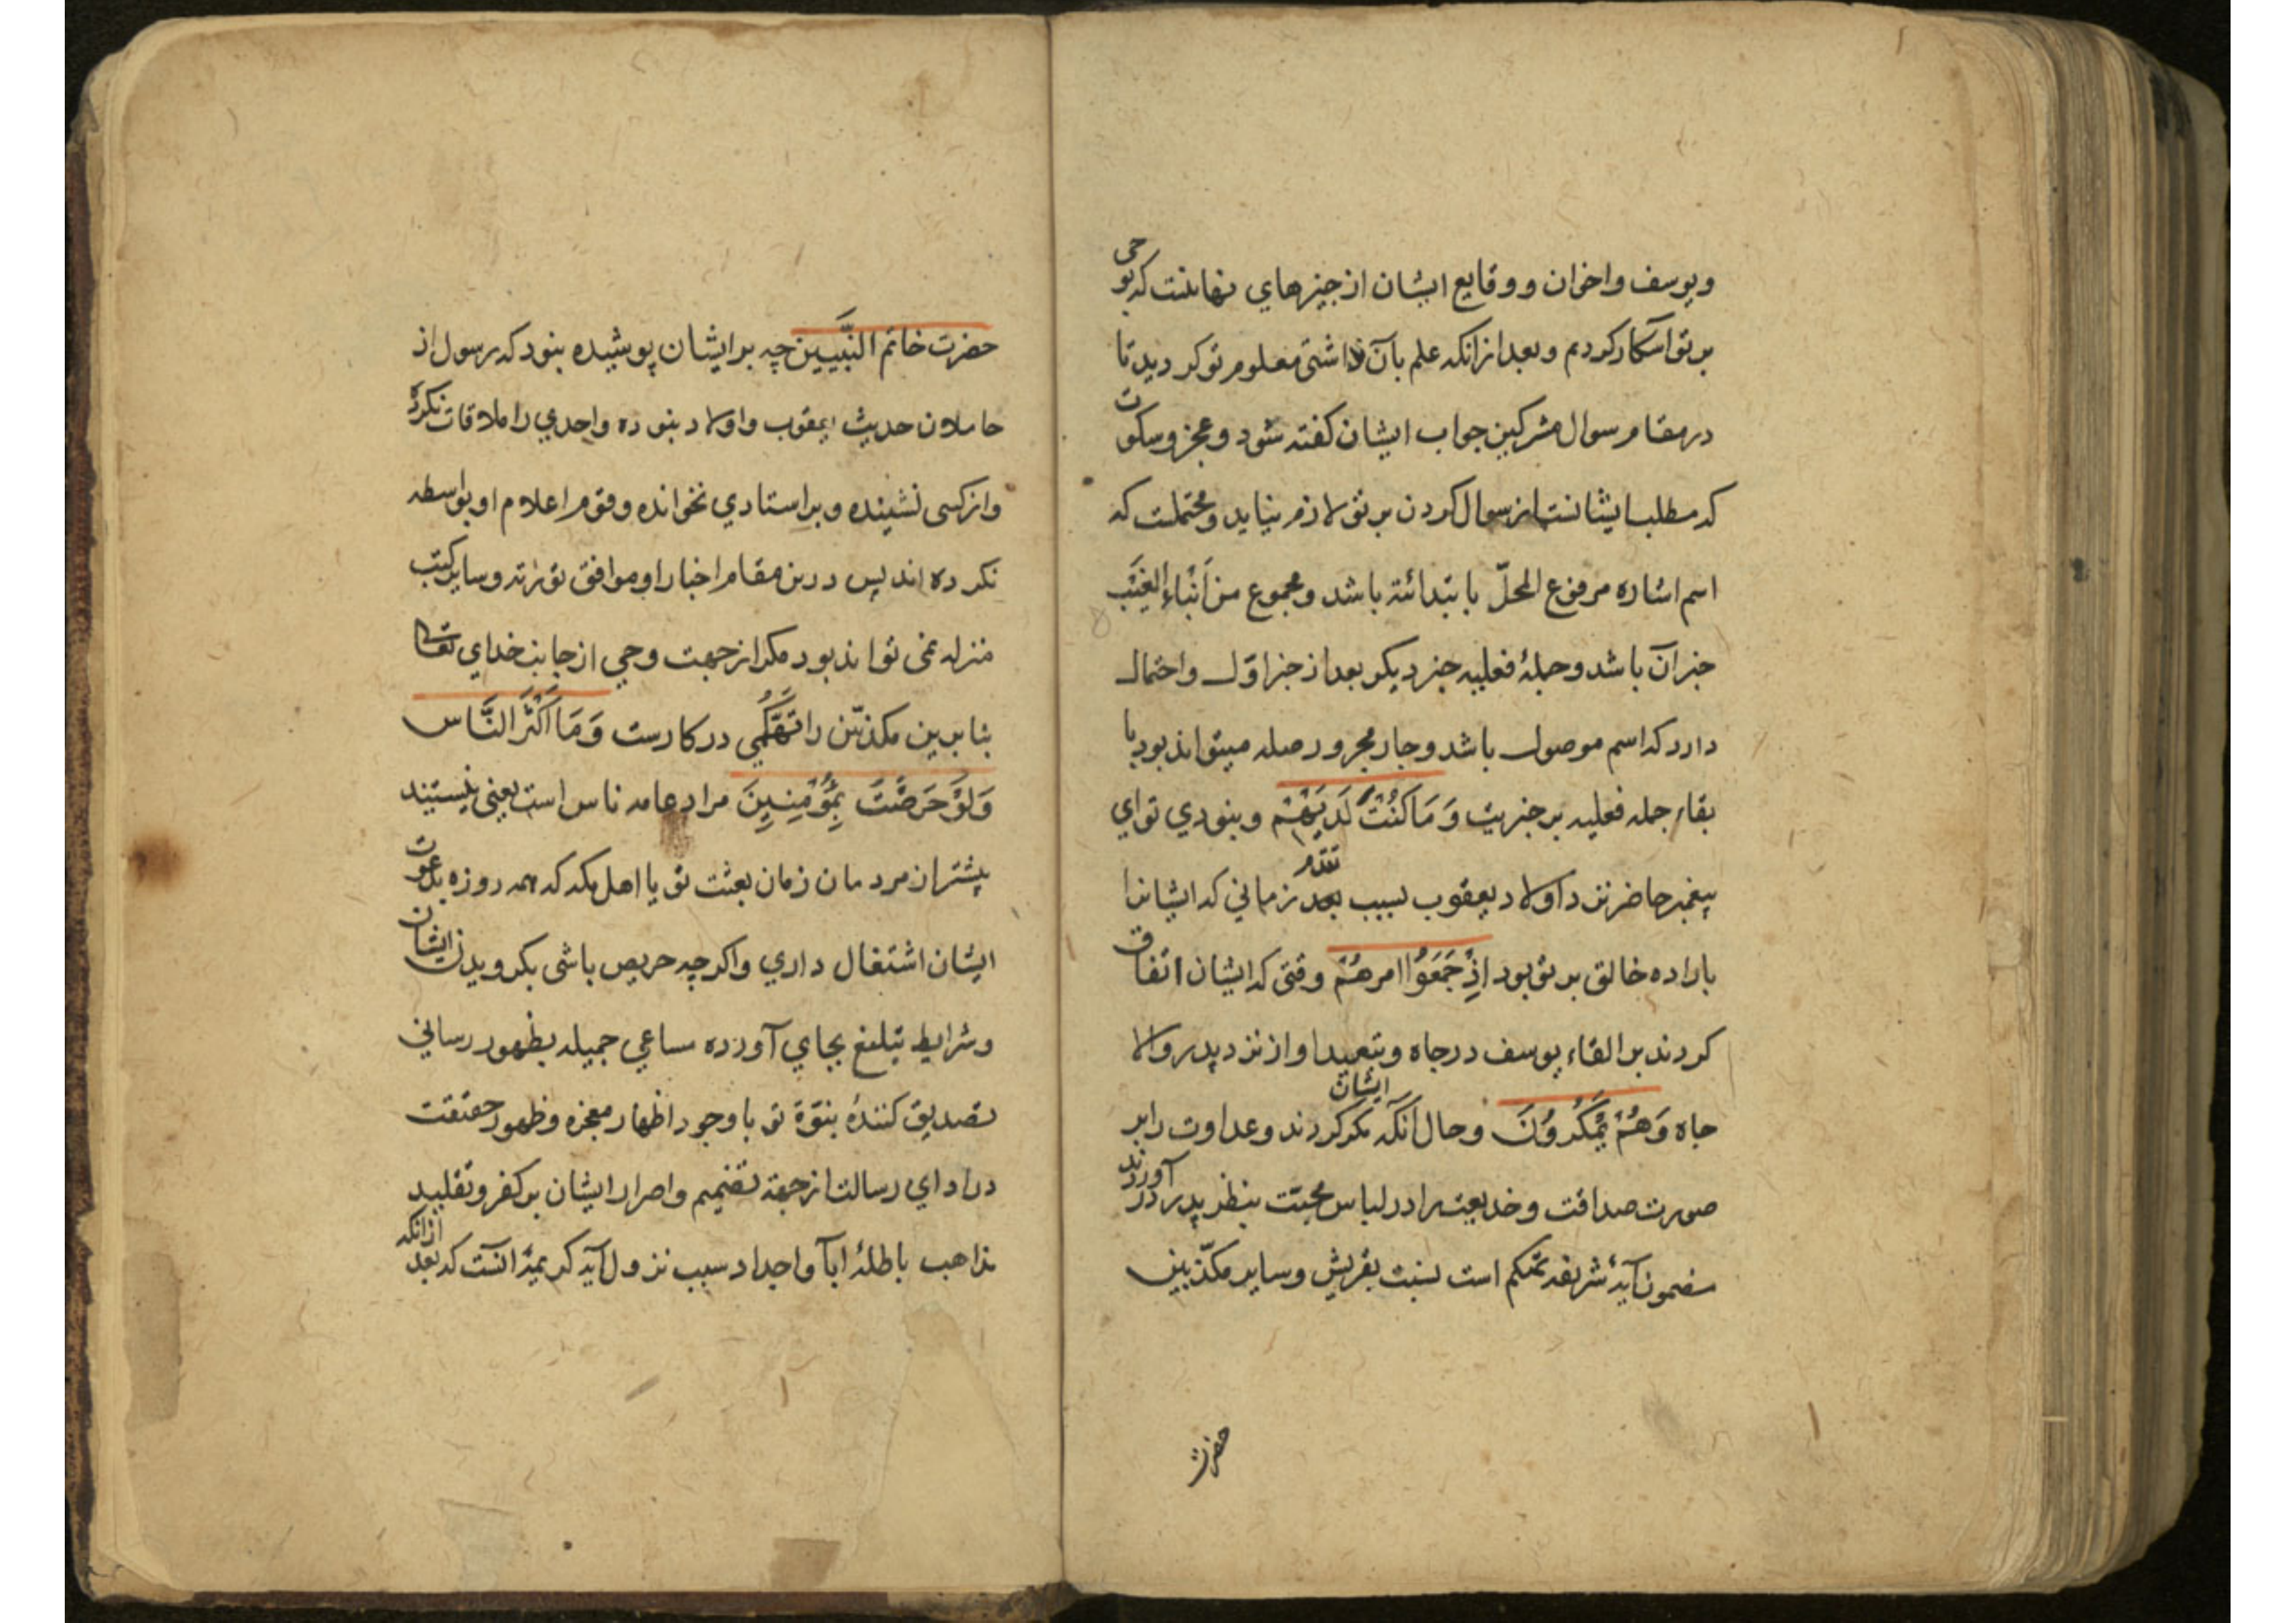 ويوسف واخوان ووقايع ايشان از چيزهاي نهانيست كه بوحى
بر تو آشكار كرديم وبعد از انكه علم بآن نداشتى معلوم تو كرديد تا
در مقام سوال مشركين جواب ايشان كفته شود وعجز وسكوت
كه مطلب ايشانست از سوال كردن بر تو لازم نيايد ومحتملست كه
اسم اشاره مرفوع المحلّ بابتدائية باشد ومجموع من اَنْبَاءِ الغَيْبِ
خبر آن باشد وجملهٔ فعليه خبر ديكر بعد از خبر اوّل واحتمال
دارد كه اسم موصول باشد وجار مجرور صله ميتواند بود با
بقاء جمله فعليه بر خبريت وَمَا كُنْتَ لَدَيْهِمْ ونبودي تو اي
پيغمبر حاضر نزد اولاد يعقوب بسبب تقدم زماني كه ايشانرا
باراده خالق بر تو بود اِذْ جَمَعُوْا امرهُمْ وقتى كه ايشان اتفاق
كردند بر القاء يوسف در چاه وتبعيد او از نزد پدر والا
جاه وَهُمْ يَمْكُرُونَ وحال آنكه ايشان مكر كردند وعداوت را بر
صورت صداقت وخديعت را در لباس محبّت بنظر پدر در آوردند
مضمون آيهٔ شريفه تهكم است نسبت بقريش وساير مكذّبين
حضرت
حضرت خاتم النَّبِيين چه بر ايشان پوشيده نبود كه رسول از
حاملان حديث يعقوب واولاد نبوده واحدي را ملاقات نكرده
واز كسى نشنيده وبر استادي نخوانده وقوم اعلام او بواسطه
نكرده اند پس درين مقام اخبار او موافق تورٰية وساير كتب
منزله نمى تواند بود مكر از جهت وحي از جانب خداي تعالى
بنابرين مكذبين را تَهَكُّمي در كارست وَمَا اَكْثَرُ النَّاس
وَلَوْ حَرَصْتَ بِمُؤْمِنِينَ مراد عامه ناس است يعنى نيستند
بيشتر از مردمان زمان بعثت تو يا اهل مكه كه همه روزه بدعوت
ايشان اشتغال داري واكرچه حريص باشى بكرويدن ايشان
وشرايط تبليغ بجاي آورده مساعي جميله بظهور رساني
تصديق كنندهٔ نبوّة تو باوجود اظهار معجزه وظهور حقيقت
در اداي رسالت از جهة تصميم واصرار ايشان بر كفر وتقليد
مذاهب باطلهٔ ابآ واجداد سبب نزول آيه كريمه آنست كه بعد از آنكه